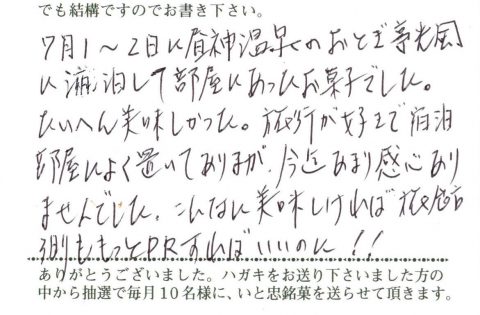 でも結構ですのでお書き下さい。
7月1〜2日に昼神温泉のおとぎ亭光風
に宿泊して部屋にあったお菓子でした。
たいへん美味しかった。旅行が好きで宿泊
部屋によく置いてありますが、今迄あまり感心あり
ませんでした。こんなに美味しければ旅館
側ももっとPRすればいいのに!!
ありがとうございました。ハガキをお送り下さいました方の
中から抽選で毎月10名様に、いと忠銘菓を送らせて頂きます。